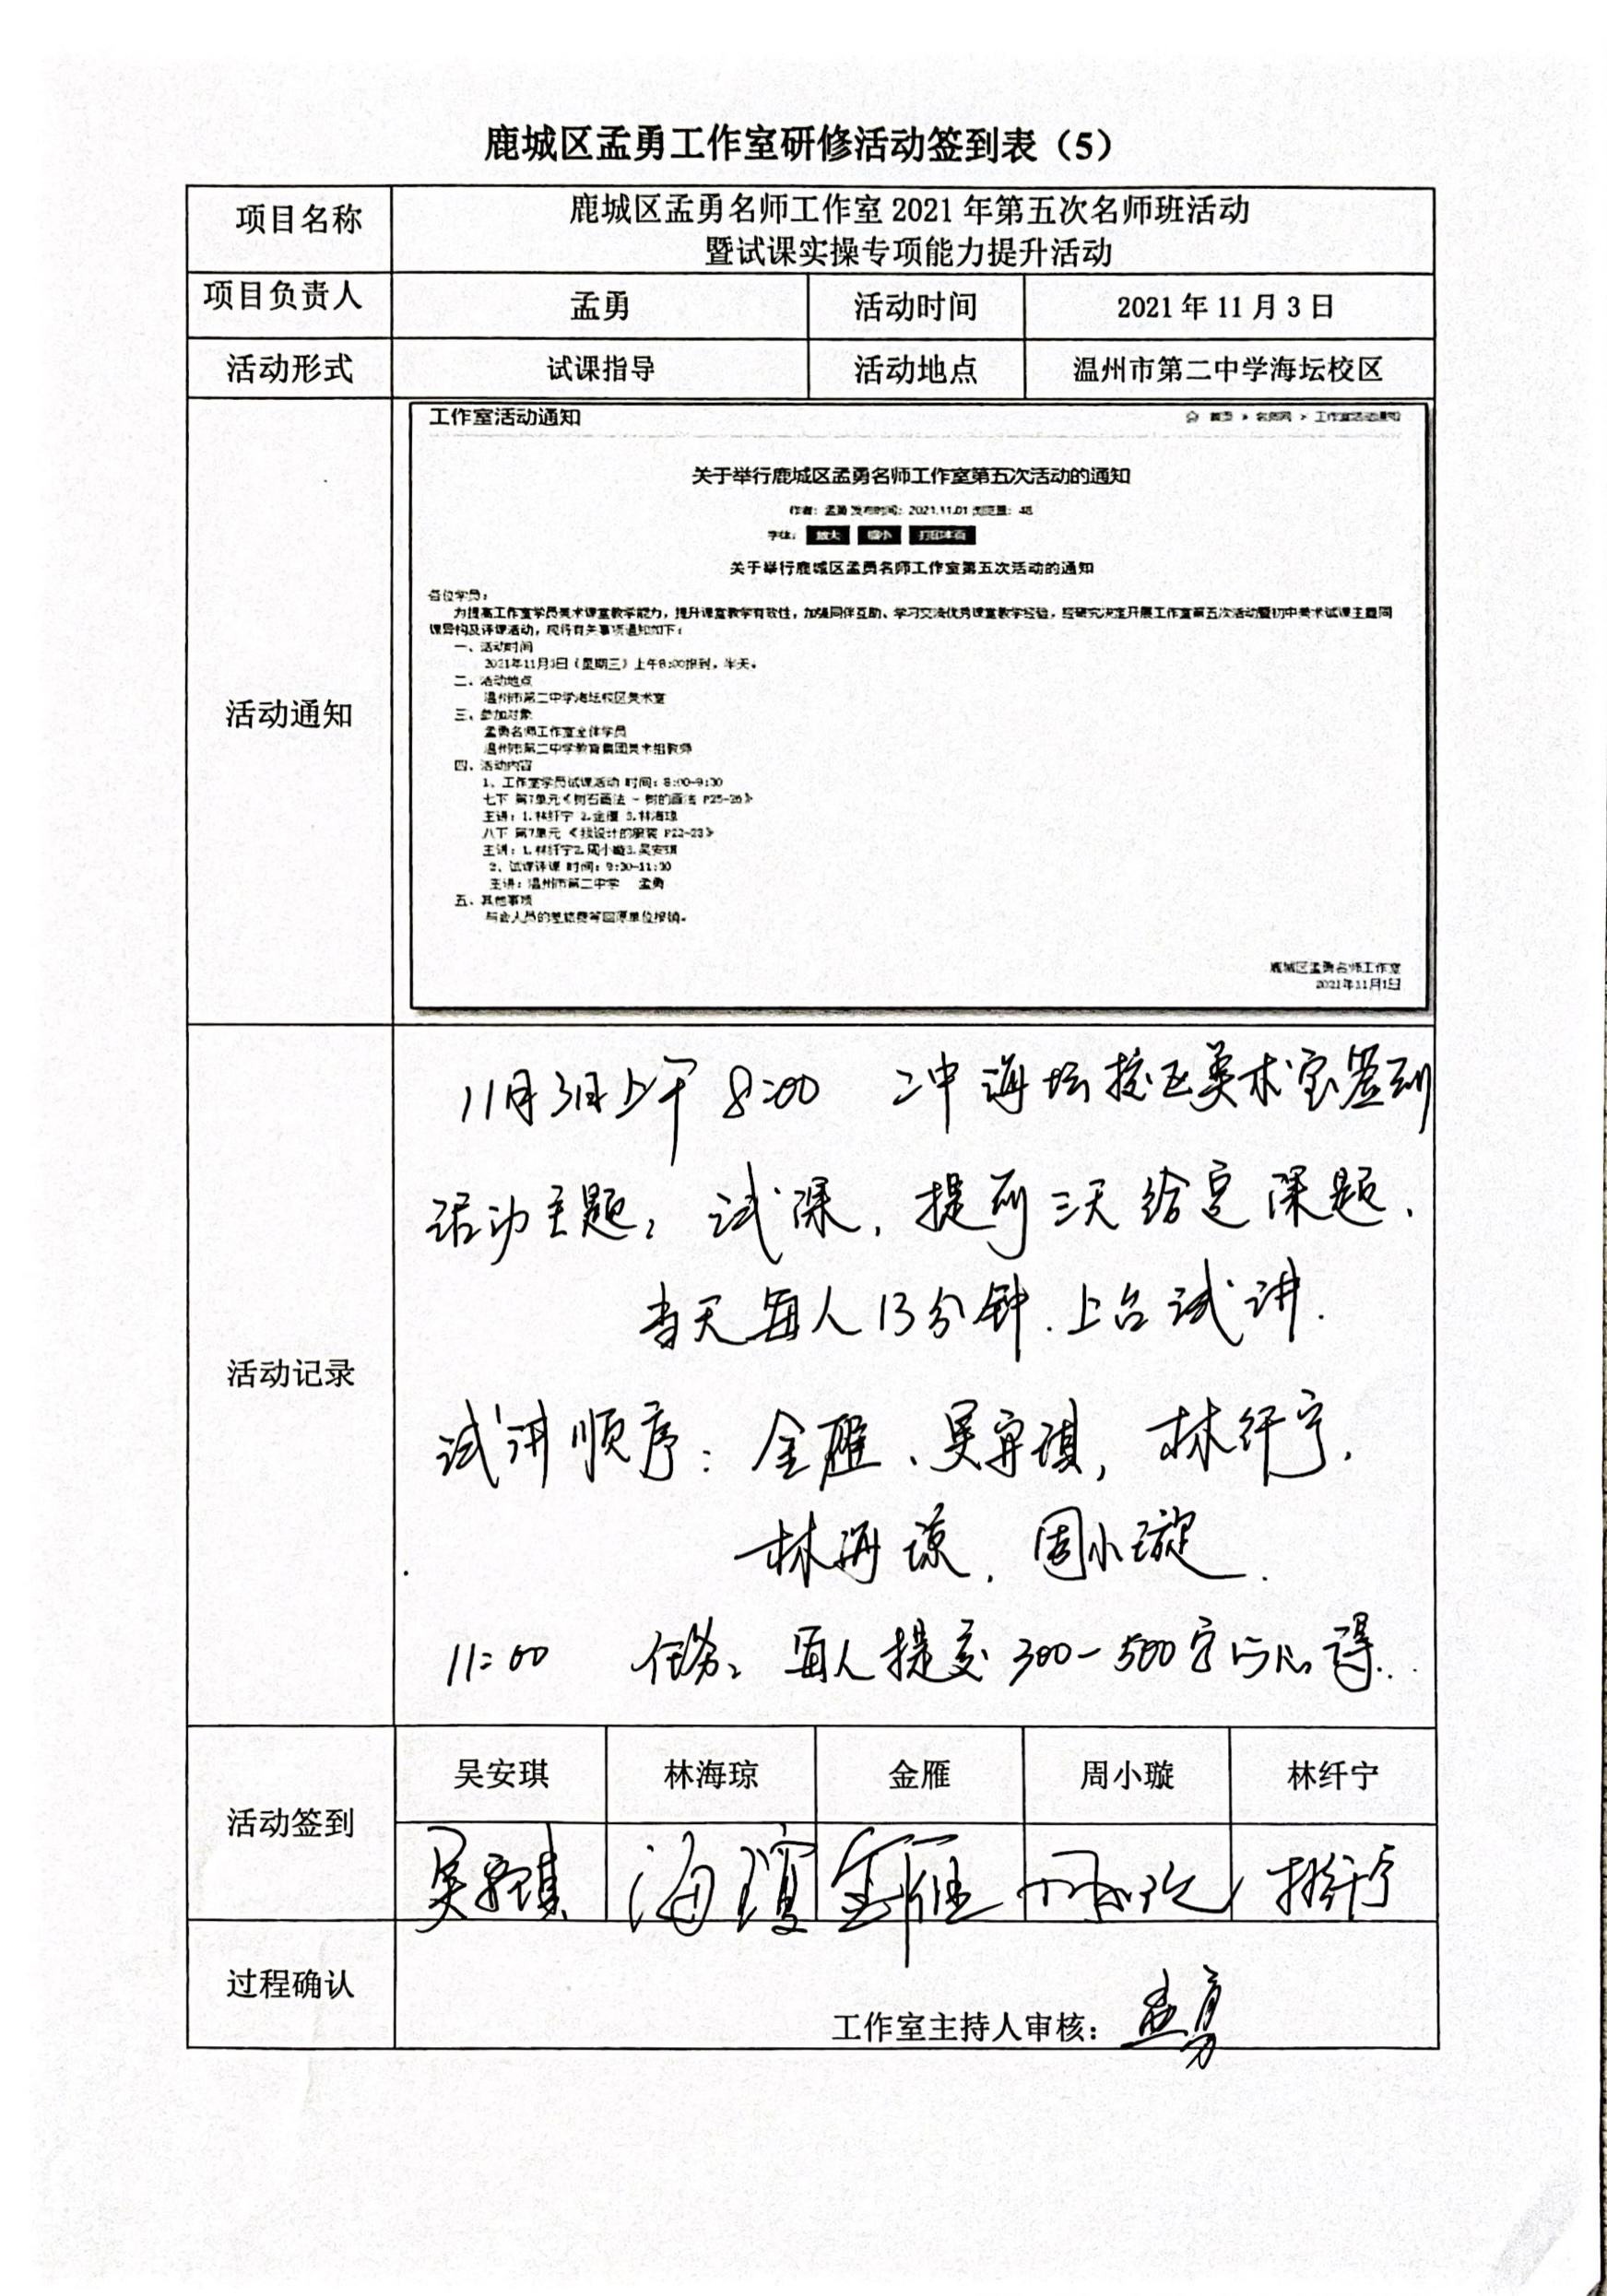 鹿城区孟勇工作室研修活动签到表（5）
项目名称
鹿城区孟勇名师工作室 2021 年第五次名师班活动
暨试课实操专项能力提升活动
项目负责人 孟勇 活动时间 2021 年 11 月 3 日
活动形式 试课指导 活动地点 温州市第二中学海坛校区
活动通知
工作室活动通知 首页 > 名师网 > 工作室活动通知
关于举行鹿城区孟勇名师工作室第五次活动的通知
作者：孟勇 发布时间：2021.11.01 浏览量：48
字体： 放大 缩小 打印本页
关于举行鹿城区孟勇名师工作室第五次活动的通知
各位学员：
为提高工作室学员美术课堂教学能力，提升课堂教学有效性，加强同伴互助、学习交流优秀课堂教学经验，经研究决定开展工作室第五次活动暨初中美术试课主题同
课异构及评课活动，现将有关事项通知如下：
一、活动时间
2021年11月3日（星期三）上午8:00报到，半天。
二、活动地点
温州市第二中学海坛校区美术室
三、参加对象
孟勇名师工作室全体学员
温州市第二中学教育集团美术组教师
四、活动内容
1、工作室学员试课活动 时间：8:00-9:30
七下 第7单元《树石画法 - 树的画法 P25-26》
主讲：1.林纤宁 2.金雁 3.林海琼
八下 第7单元 《我设计的服装 P22-23》
主讲：1.林纤宁2.周小璇3.吴安琪
2、试课评课 时间：9:30-11:30
主讲：温州市第二中学 孟勇
五、其他事项
与会人员的差旅费等回原单位报销。
鹿城区孟勇名师工作室
2021年11月1日
活动记录
11月3日上午 8:00 二中海坛校区美术室签到
活动主题：试课，提前三天给定课题.
当天每人13分钟.上台试讲.
试讲顺序：金雁、吴安琪，林纤宁，
林海琼，周小璇.
11:00 任务：每人提交300-500字心得..
活动签到
吴安琪 林海琼 金雁 周小璇 林纤宁
吴安琪 海琼 金雁 林纤宁
过程确认
工作室主持人审核： 孟勇